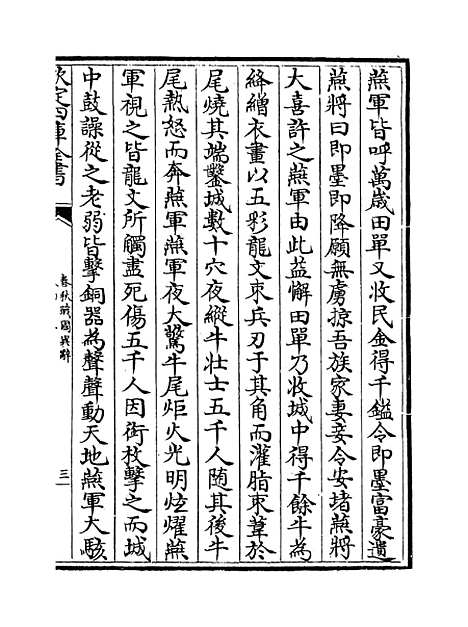 燕軍皆呼萬歲田單又收民金得千鎰令即墨富豪遺
燕將曰即墨即降願無虜掠吾族家妻妾令安堵燕將
大喜許之燕軍由此益懈田單乃收城中得千餘牛為
絳繒衣畫以五彩龍文束兵刃于其角而灌脂束葦於
尾燒其端鑿城數十穴夜縱牛壯士五千人隨其後牛
尾熱怒而奔燕軍燕軍夜大驚牛尾炬火光明炫燿燕
軍視之皆龍文所觸盡死傷五千人因銜枚擊之而城
中鼓譟從之老弱皆擊銅器為聲聲動天地燕軍大駭
欽定四庫全書
春秋戰國異辭
三